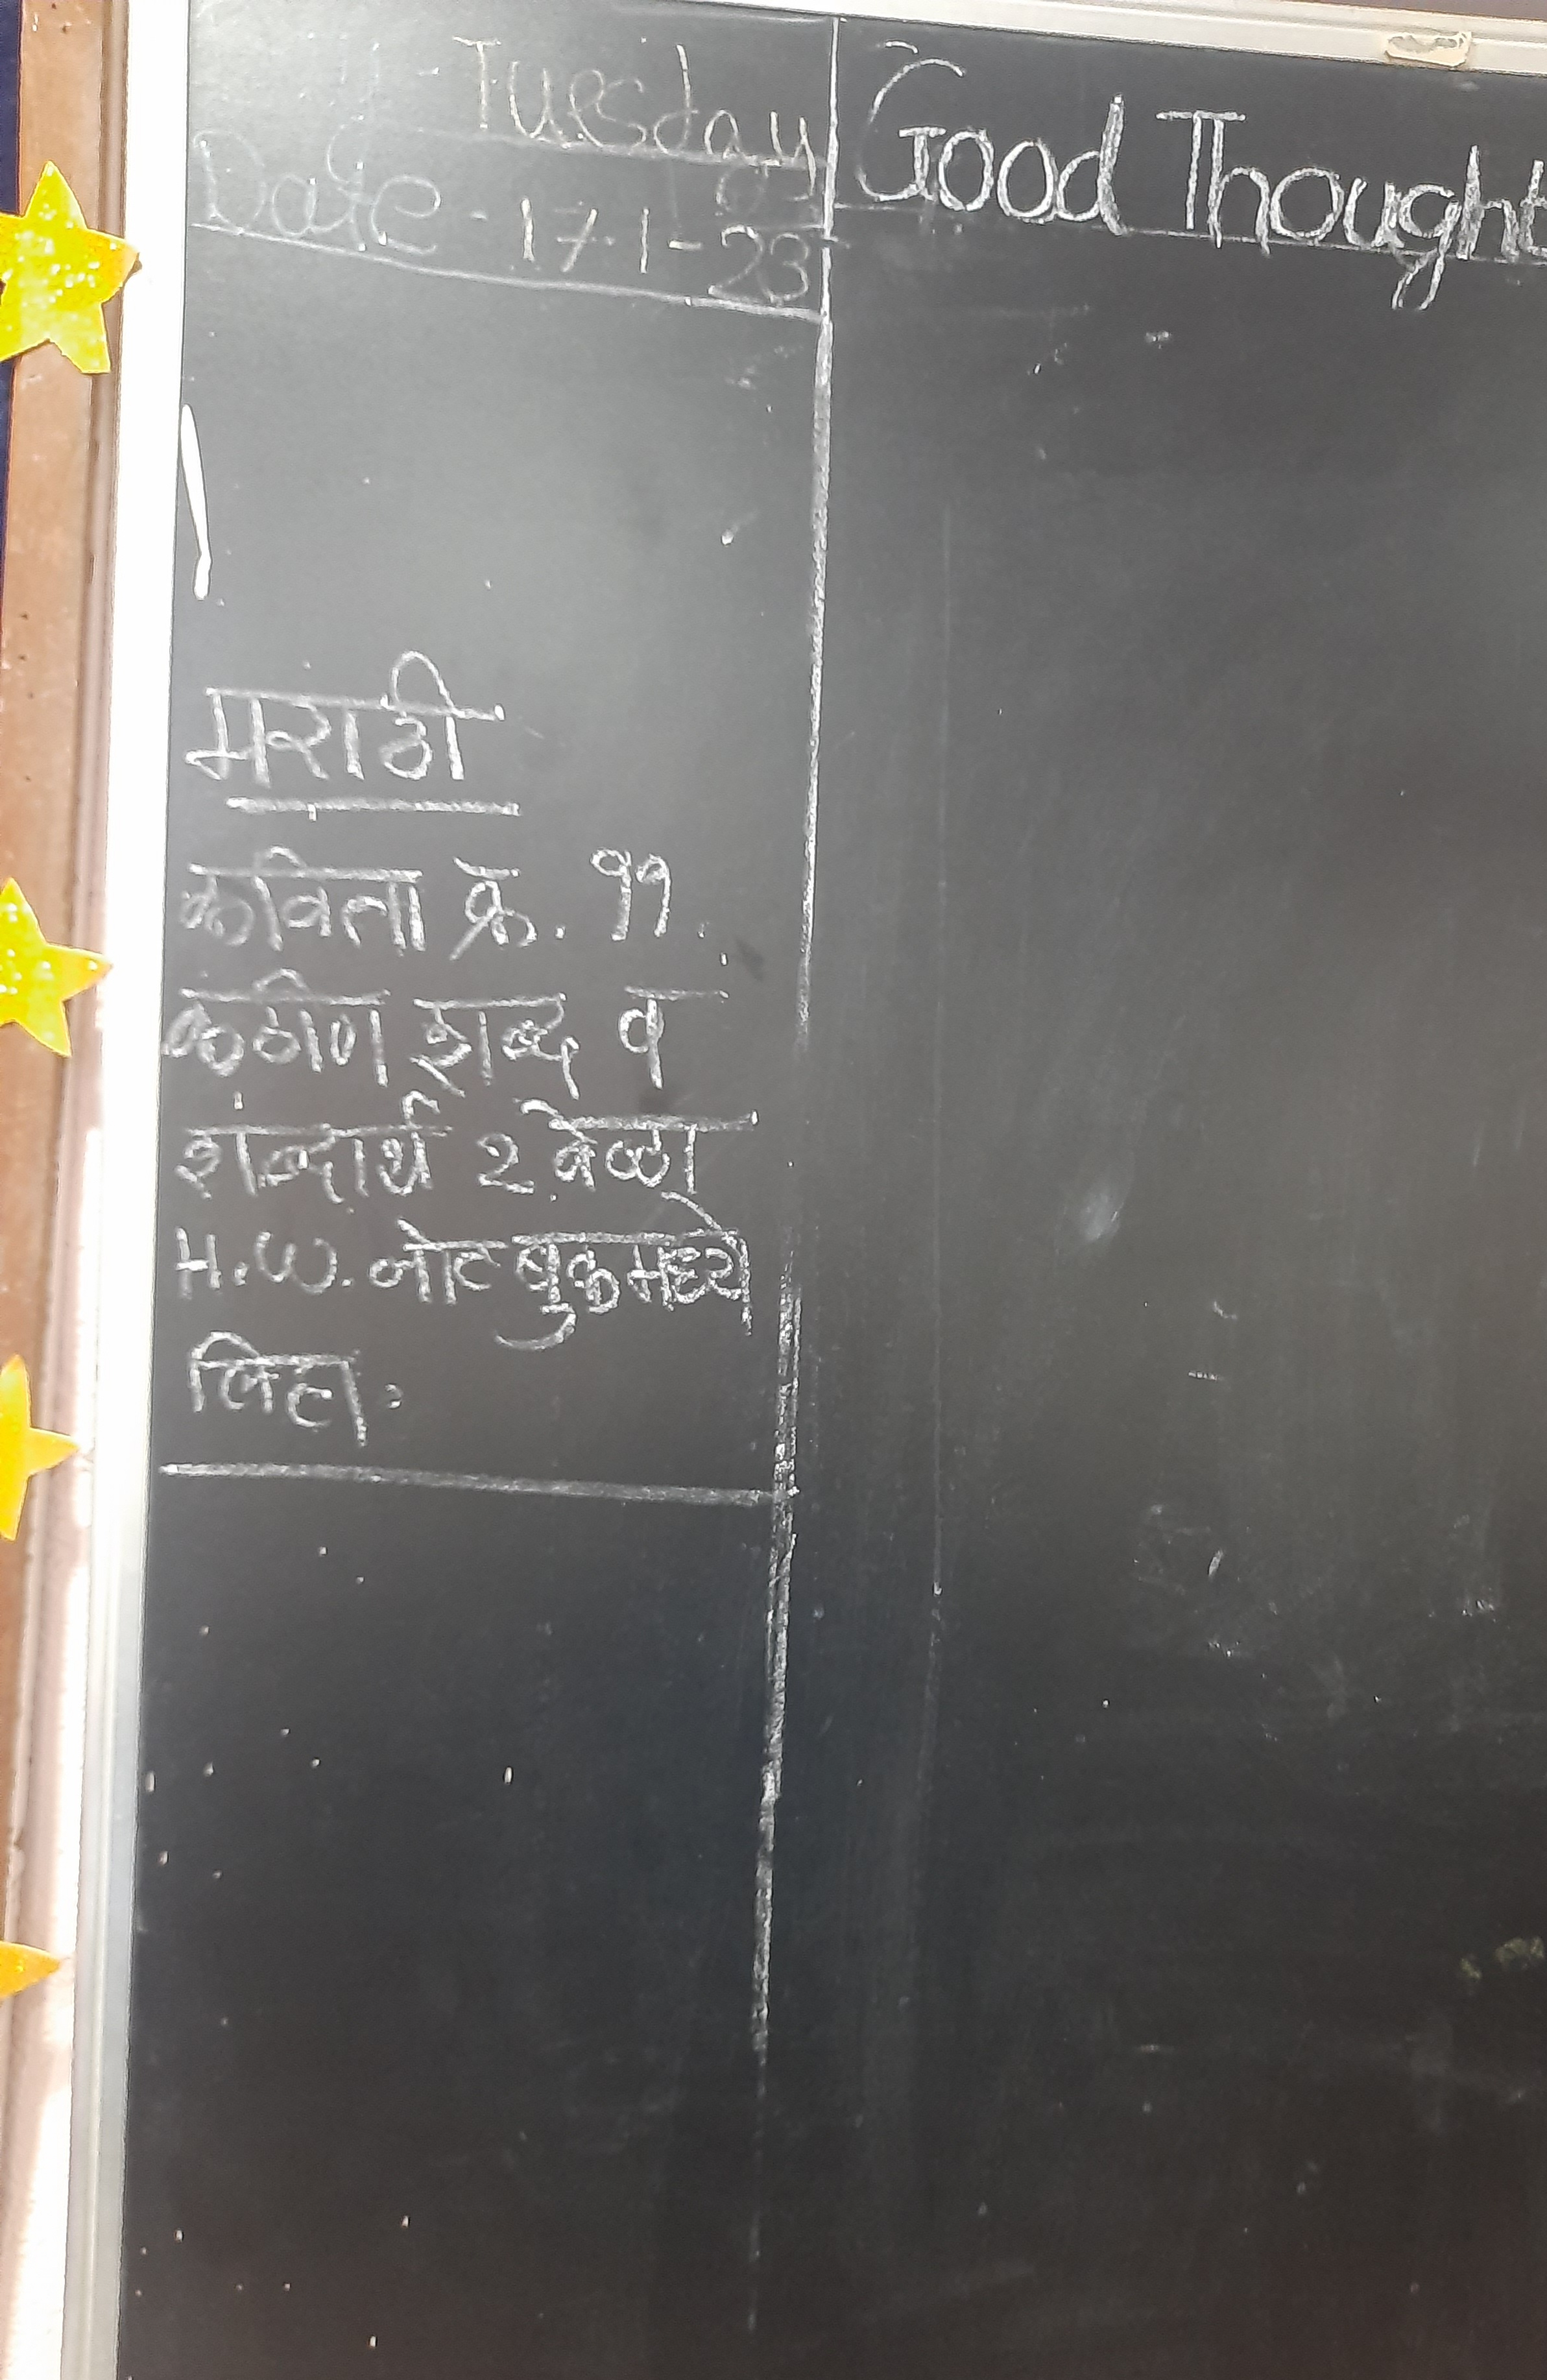 Day - Tuesday
Date - 17-1-23
Good Thought
मराठी
कविता क्रं. ११.
कठीण शब्द व
शब्दार्थ २ वेळा
H.W. नोट बुकमध्ये
लिहा.